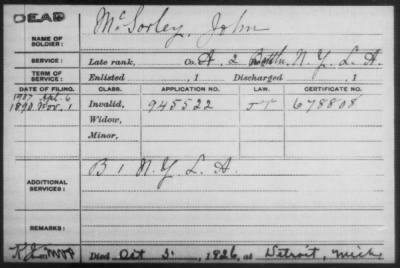 DEAD
NAME OF SOLDIER: McSorley, John
SERVICE: Late rank, Co. A, 2 Battln. N.Y. L. A.
TERM OF SERVICE: Enlisted , 1 Discharged , 1
DATE OF FILING. CLASS. APPLICATION NO. LAW. CERTIFICATE NO.
1907 Apl. 6
1890 Nov. 1 Invalid, 945522 678808
Widow,
Minor,
ADDITIONAL SERVICES: B 1 N.Y. L. A.
REMARKS:
Died Oct , 1926, at Detroit, Mich